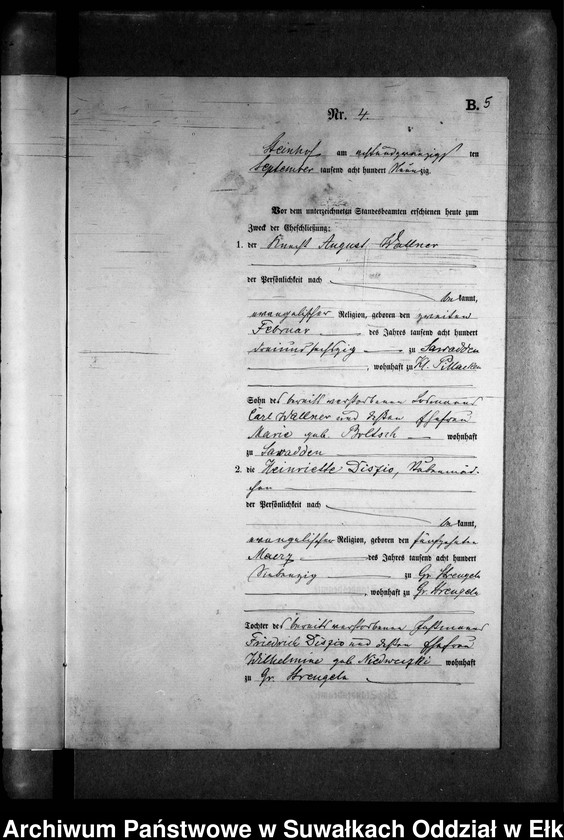 B. 5
Nr. 4.
Steinhof am achtundzwanzigsten
September tausend acht hundert Neunzig.
Vor dem unterzeichneten Standesbeamten erschienen heute zum
Zweck der Eheschließung:
1. der Knecht August Wallner
der Persönlichkeit nach
bekannt,
evangelischer Religion, geboren den zweiten
Februar des Jahres tausend acht hundert
dreiundsechszig zu Sawadden
, wohnhaft zu Kl. Pillacken
Sohn des bereits verstorbenen Losmanns
Carl Wallner und dessen Ehefrau
Marie geb. Boltsch wohnhaft
zu Sawadden
2. die Henriette Diszio, Stubenmäd-
chen
der Persönlichkeit nach
bekannt,
evangelischer Religion, geboren den fünfzehnten
Maerz des Jahres tausend acht hundert
Siebenzig zu Gr. Strengeln
, wohnhaft zu Gr. Strengeln
Tochter des bereits verstorbenen
Friedrich Diszio und dessen Ehefrau
Wilhelmine geb. wohnhaft
zu Gr. Strengeln
Archiwum Państwowe w Suwałkach Oddział w Ełk